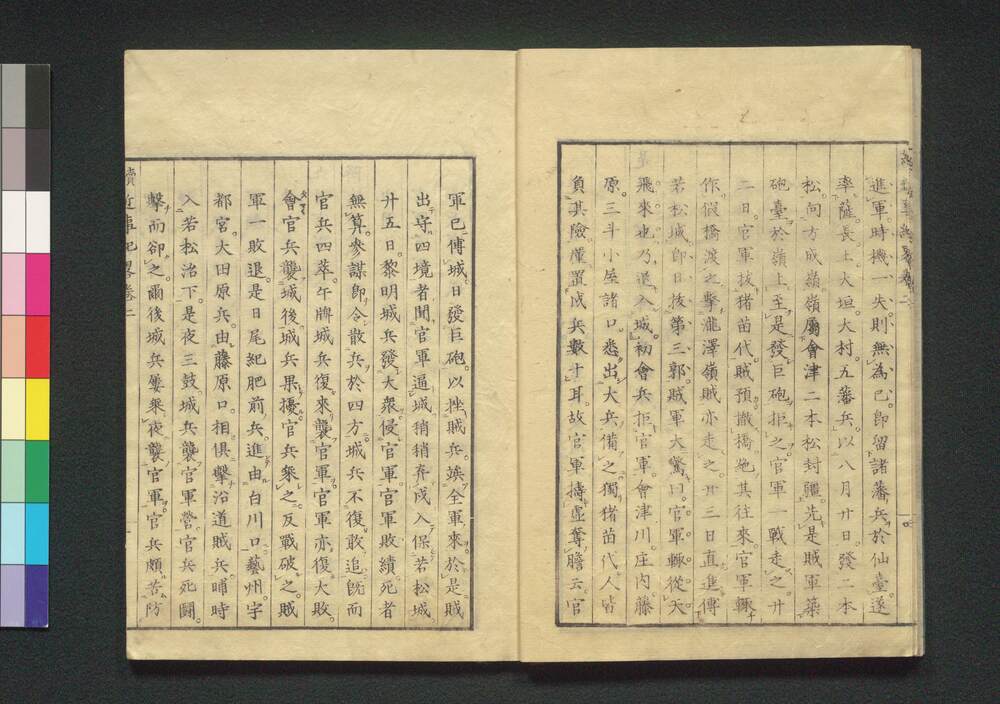 進軍時機一失則無為已即留諸藩兵於仙臺遂
率薩長土大垣大村五藩兵以八月廿日發二本
松向方成嶺嶺屬會津二本松封疆先是賊軍築
砲臺於嶺上至是發巨砲拒之官軍一戰走之廿
二日官軍拔猪苗代賊預撤橋絶其往來官軍輙
作假橋渡之擊瀧澤嶺賊亦走之廿三日直進傳
若松城即日拔第三郭賊軍大驚曰官軍輙從天
飛來也乃遁入城初會兵拒官軍會津川庄内藤
原三斗小屋諸口悉出大兵備之獨猪苗代人皆
負其險僅置戍兵數十耳故官軍擣虛奪膽云官
軍已傳城日發巨砲以挫賊兵竢全軍來於是賊
出守四境者聞官軍逼城稍稍弃戍入保若松城
廿五日黎明城兵發大衆侵官軍官軍敗績死者
無算參謀即令散兵於四方城兵不復敢追既而
官兵四萃午牌城兵復來襲官軍官軍亦復大敗
會官兵襲城後城兵果擾官兵乘之反戰破之賊
軍一敗退是日尾紀肥前兵進由白川口藝州宇
都宮大田原兵由藤原口相俱擊沿道賊兵晡時
入若松治下是夜三鼓城兵襲官軍營官兵死鬪
擊而卻之爾後城兵屢乘夜襲官軍官兵頗苦防
續近事紀畧卷二